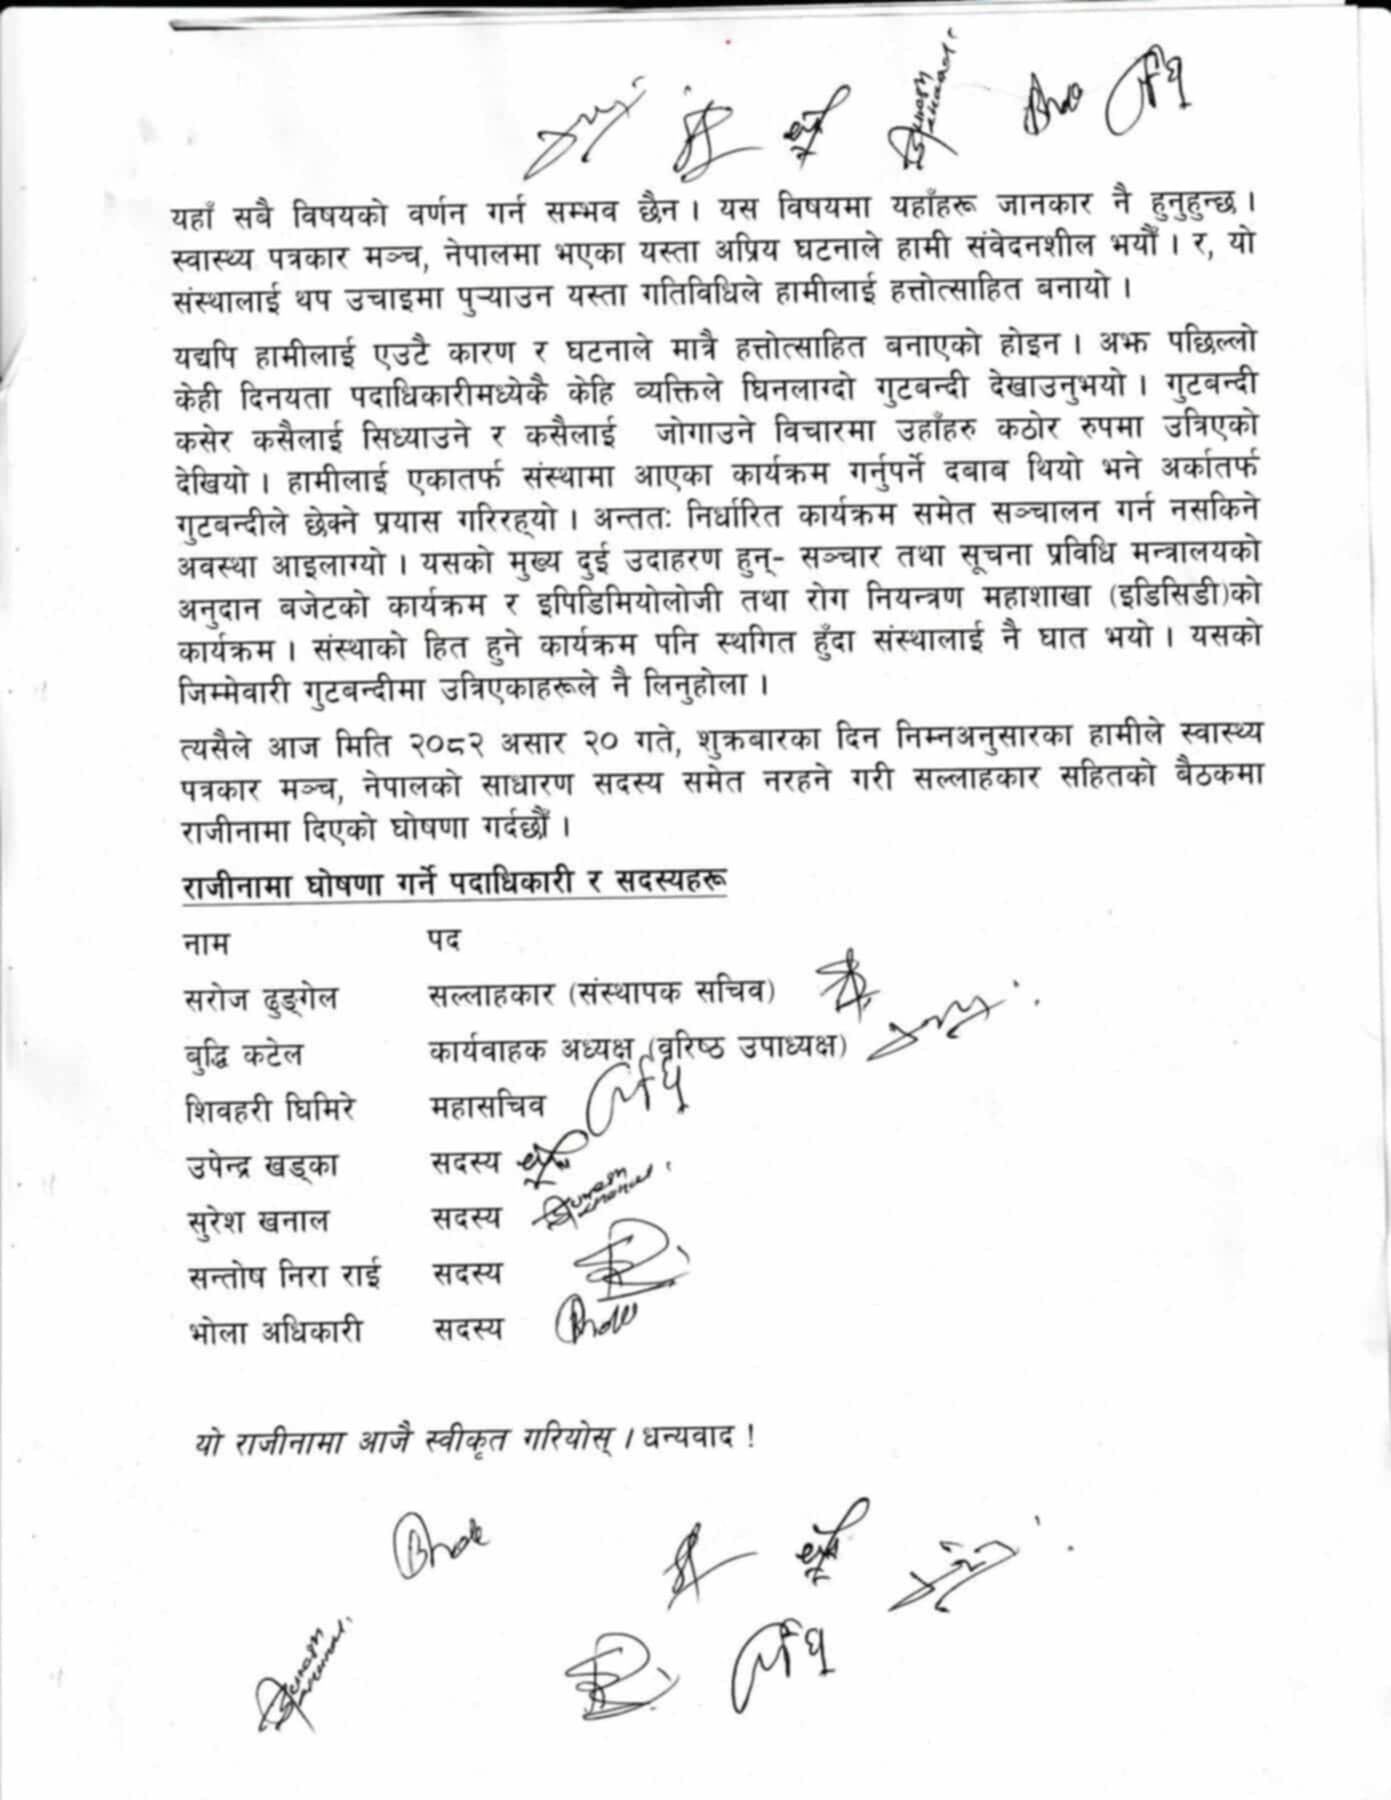 यहाँ सबै विषयको वर्णन गर्न सम्भव छैन । यस विषयमा यहाँहरू जानकार नै हुनुहुन्छ ।
स्वास्थ्य पत्रकार मञ्च, नेपालमा भएका यस्ता अप्रिय घटनाले हामी संवेदनशील भयौँ । र, यो
संस्थालाई थप उचाइमा पुर्‍याउन यस्ता गतिविधिले हामीलाई हत्तोत्साहित बनायो ।
यद्यपि हामीलाई एउटै कारण र घटनाले मात्रै हत्तोत्साहित बनाएको होइन । अझ पछिल्लो
केही दिनयता पदाधिकारीमध्येकै केहि व्यक्तिले घिनलाग्दो गुटबन्दी देखाउनुभयो । गुटबन्दी
कसेर कसैलाई सिध्याउने र कसैलाई जोगाउने विचारमा उहाँहरु कठोर रुपमा उत्रिएको
देखियो । हामीलाई एकातर्फ संस्थामा आएका कार्यक्रम गर्नुपर्ने दबाब थियो भने अर्कातर्फ
गुटबन्दीले छेक्ने प्रयास गरिरह्यो । अन्ततः निर्धारित कार्यक्रम समेत सञ्चालन गर्न नसकिने
अवस्था आइलाग्यो । यसको मुख्य दुई उदाहरण हुन्- सञ्चार तथा सूचना प्रविधि मन्त्रालयको
अनुदान बजेटको कार्यक्रम र इपिडिमियोलोजी तथा रोग नियन्त्रण महाशाखा (इडिसिडी)को
कार्यक्रम । संस्थाको हित हुने कार्यक्रम पनि स्थगित हुँदा संस्थालाई नै घात भयो । यसको
जिम्मेवारी गुटबन्दीमा उत्रिएकाहरूले नै लिनुहोला ।
त्यसैले आज मिति २०८२ असार २० गते, शुक्रबारका दिन निम्नअनुसारका हामीले स्वास्थ्य
पत्रकार मञ्च, नेपालको साधारण सदस्य समेत नरहने गरी सल्लाहकार सहितको बैठकमा
राजीनामा दिएको घोषणा गर्दछौँ ।
राजीनामा घोषणा गर्ने पदाधिकारी र सदस्यहरू
नाम पद
सरोज ढुङ्गेल सल्लाहकार (संस्थापक सचिव)
बुद्धि कटेल कार्यवाहक अध्यक्ष (वरिष्ठ उपाध्यक्ष)
शिवहरी घिमिरे महासचिव
उपेन्द्र खड्का सदस्य
सुरेश खनाल सदस्य
सन्तोष निरा राई सदस्य
भोला अधिकारी सदस्य
यो राजीनामा आजै स्वीकृत गरियोस् । धन्यवाद !